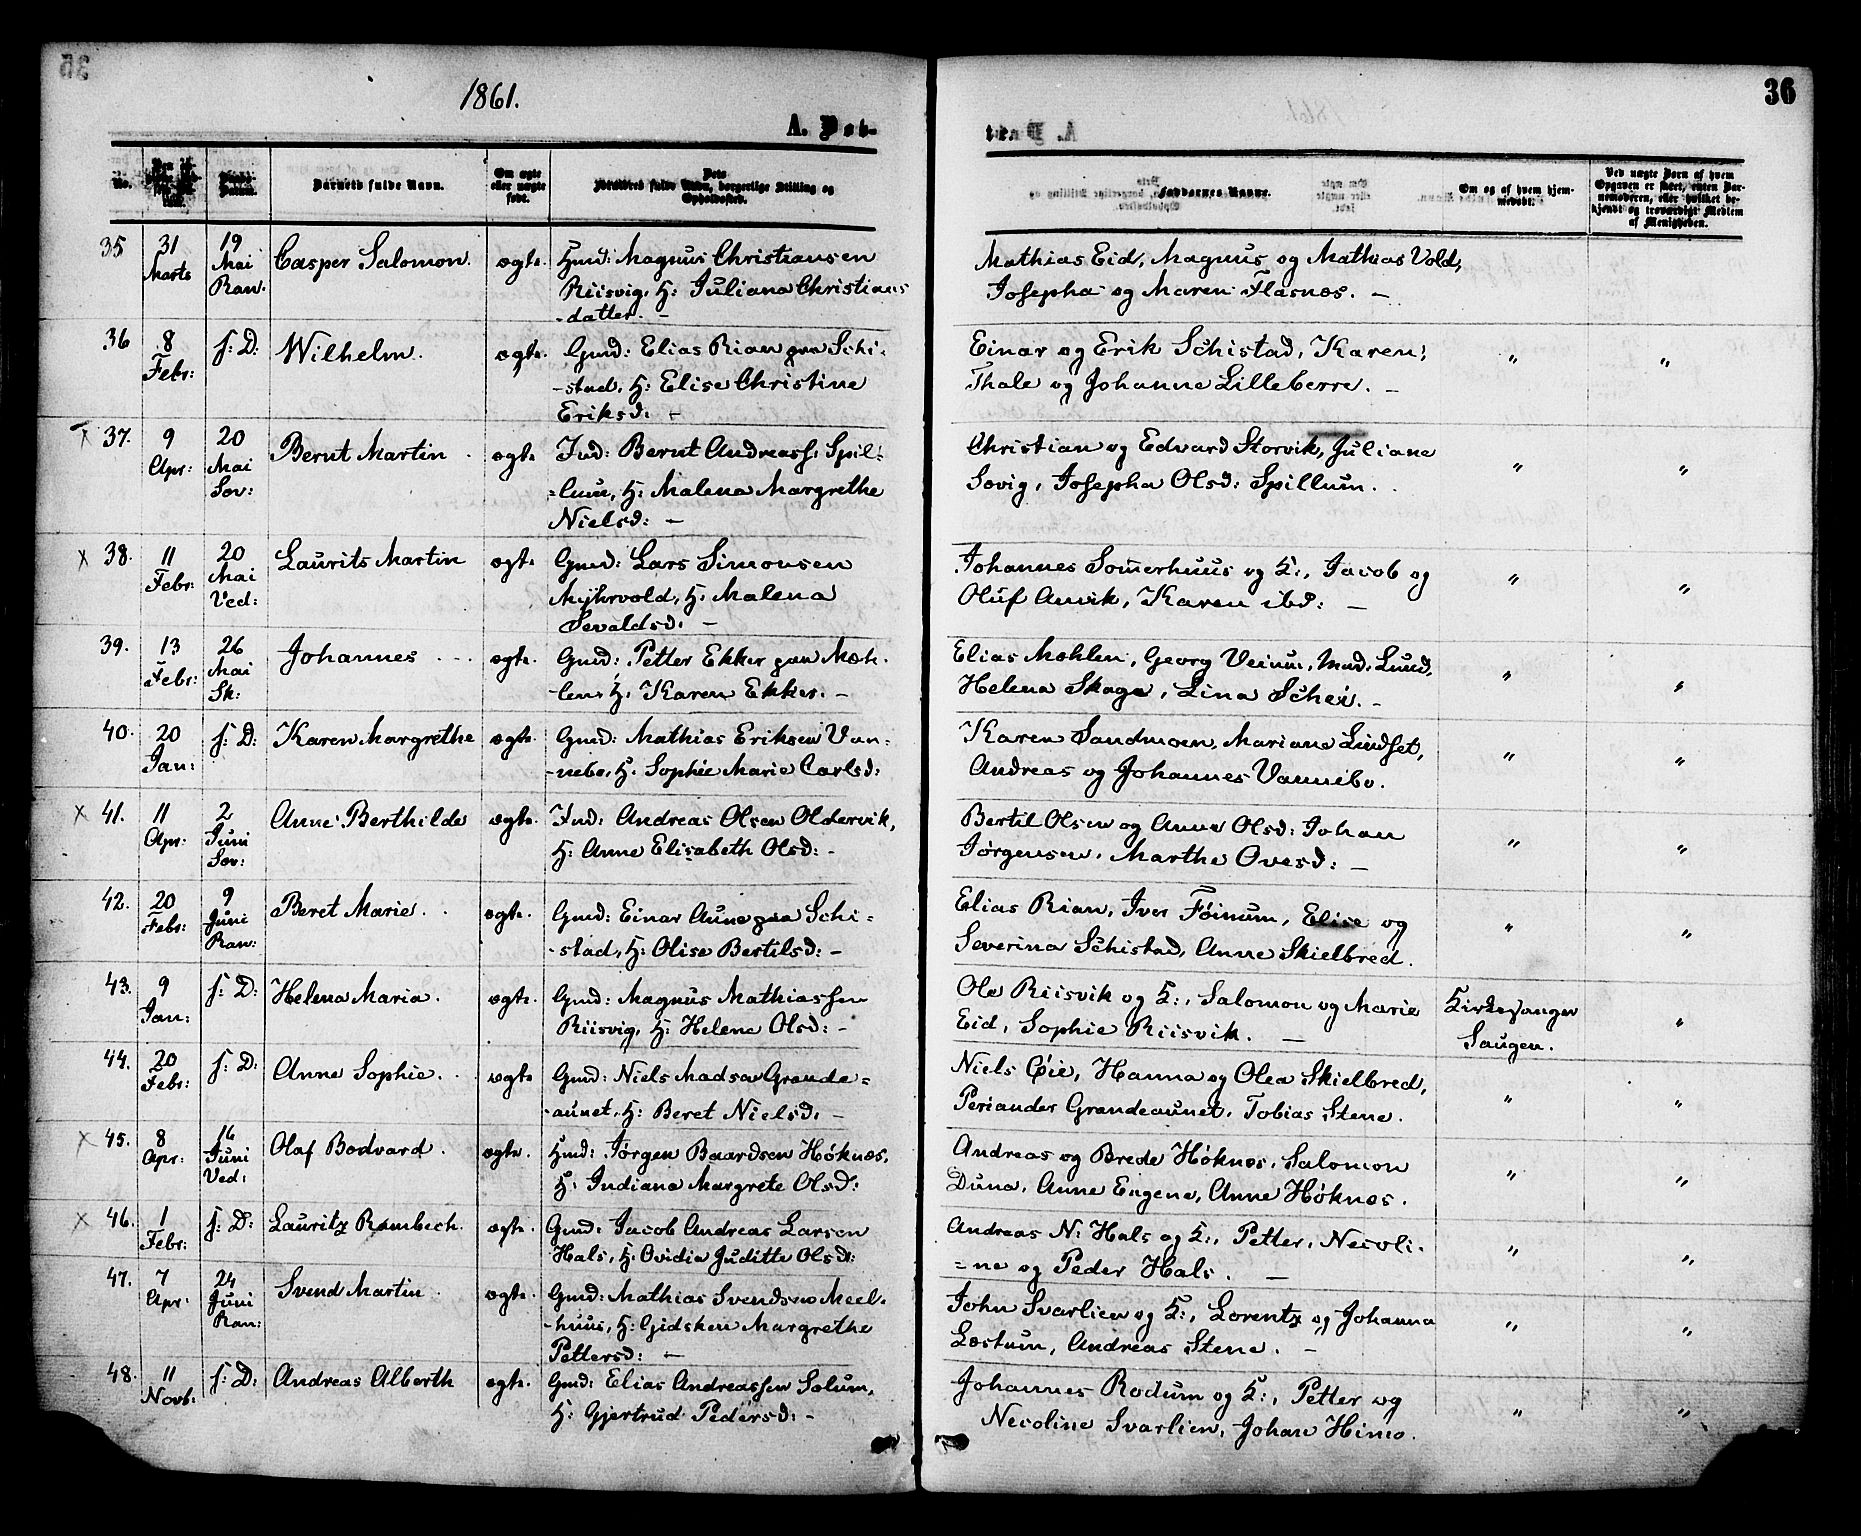 1861.
36
A. Døb-
No.
Barnets fulde Navn.
Om ægte eller uægte født.
Forældres fulde Navn, borgerlige Stilling og Opholdssted.
Faddernes Navne.
Om og af hvem hjemmedøbt.
Ved uægte Børn af hvem Opgaven er skeet, enten Barnemoderen, eller hvilket bekjendt og troværdigt Medlem af Menigheden.
35 31 Marts 19 Mai Ran. Casper Salomon. ægte. Hmd: Magnus Christiansen
Riisvig, H: Juliana Christians
-datter. -
Mathias Eid, Magnus og Mathias Vold,
Josepha og Maren Flasnæs. -
36 8 Febr: f: D: Wilhelm. ægte. Gmd: Elias Rian paa Schi-
-stad, H: Elise Christine
Eriksd: -
Einar og Erik Schistad, Karen,
Thale og Johanne Lilleberre. - " "
x 37. 9 Apr: 20 Mai Sœv: Bernt Martin. ægte Ind: Bernt Andreass: Spil-
=lum, H: Malena Margrethe
Nielsd: -
Christian og Edvard Storvik, Juliane
Sœvig, Josepha Olsd: Spillum. " "
x 38. 11 Febr: 20 Mai Ved: Laurits Martin ægte. Gmd: Lars Simonsen
Myhrvold, H. Malena
Sevaldsd: -
Johannes Somerhuus og K:, Jacob og
Oluf Amvik, Karen ibd: - " "
39. 13 Febr: 26 Mai Sk: Johannes ægte. Gmd: Petter Ekker paa Mœh-
-len, H. Karen Ekker. -
Elias Mœhlen, Georg Veium, Mad. Lund,
Helena Skage, Lina Schei. - " "
40. 20 Jan: f: D: Karen Margrethe ægte. Gmd: Mathias Eriksen Van-
-nebo, H. Sophie Marie Carlsd:
Karen Sandmoen, Mariane Lindset,
Andreas og Johannes Vannebo. " "
x 41. 11 Apr: 2 Juni Sœv: Anne Berthilde ægte. Ind: Andreas Olsen Oldervik,
H: Anne Elisabeth Olsd: -
Bertil Olsen og Anne Olsd: Johan
Jørgensen, Marthe Ovesd: - " "
42. 20 Febr: 9 Juni Ran: Beret Marie. ægte. Gmd: Einar Aune paa Schi=
-stad, H: Olise Bertilsd: -
Elias Rian, Iver Føinum, Elise og
Severina Schistad, Anne Skielbred. " "
43. 9 Jan: f: D: Helena Maria. ægte. Gmd: Magnus Mathiassen
Riisvig, H: Helene Olsd: -
Ole Riisvik og K:, Salomon og Marie
Eid, Sophie Riisvik. -
Kirkesanger
Saugen. "
44. 20 Febr: f: D: Anne Sophie. ægte Gmd: Niels Madsen Grande=
-aunet, H: Beret Nielsd: -
Niels Øie, Hanna og Olea Skielbred,
Periander Grandeaunet, Tobias Stene. " "
x 45. 8 Apr: 16 Juni Ved: Olaf Bodvard. ægte. Hmd: Jørgen Baardsen Høknæs,
H: Indiana Margrete Olsd:
Andreas og Brede Høknæs, Salomon
Duna, Anne Engene, Anne Høknæs. " "
x 46. 1 Febr: f: D: Lauritz Rambech. ægte. Gmd: Jacob Andreas Larsen
Hals, H. Ovidia Juditte Olsd:
Andreas N: Hals og K:, Petter, Necoli-
=ne og Peder Hals. - " "
47. 7 Apr: 24 Juni Ran: Svend Martin. ægte. Gmd: Mathias Svendsen Meel-
-huus, H: Gjidsken Margrethe
Pettersd: -
John Svarlien og K:, Lorentz og Johanna
Lœstum, Andreas Stene. - " "
48. 11 Novb: f: D: Andreas Alberth ægte. Gmd: Elias Andreassen Solum,
H: Gjertrud Pedersd: -
Johannes Rodum og K:, Petter og
Necoline Svarlien, Johan Himo. " "